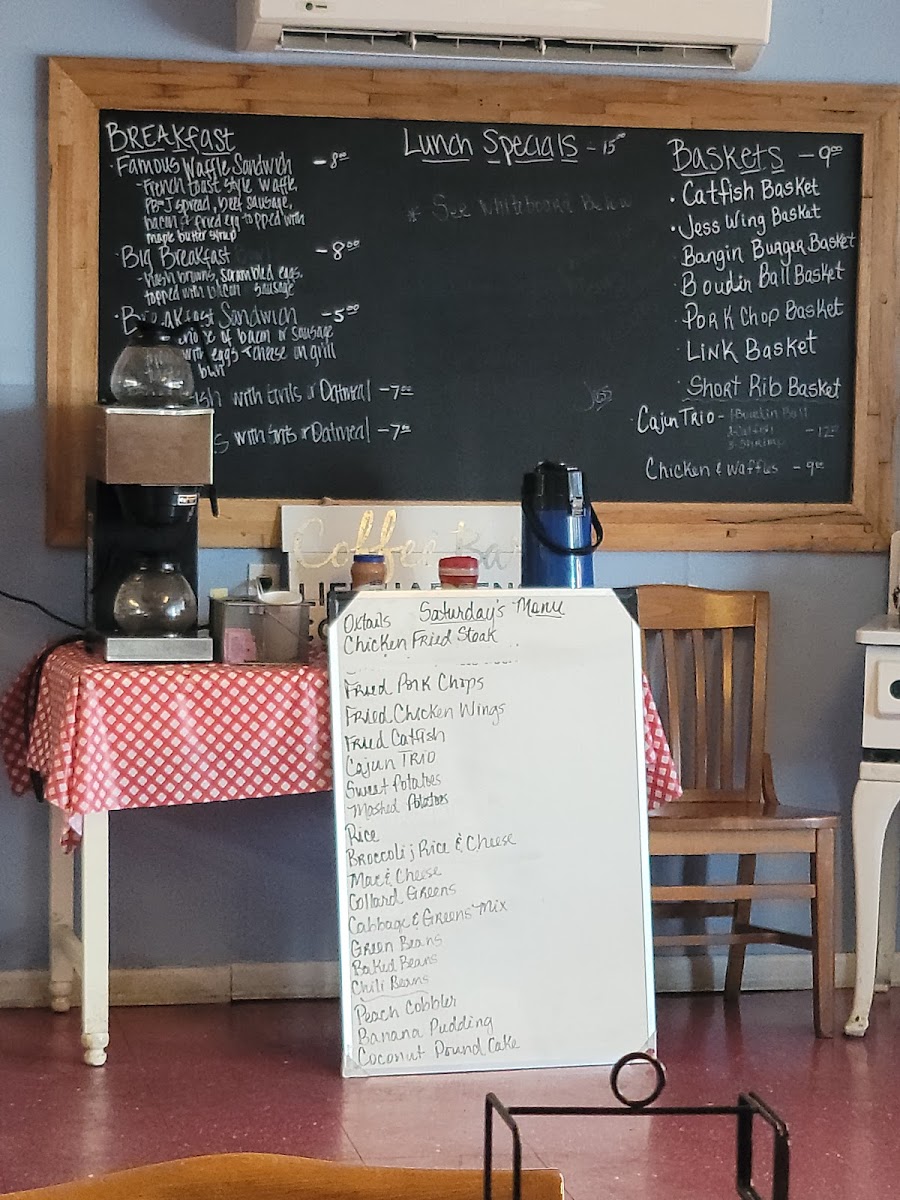 BREAKFAST
· Famous Waffle Sandwich - 8⁰⁰
- French toast style waffle,
PB&J spread, beef sausage,
bacon & fried egg topped with
maple butter syrup
· Big Breakfast - 8⁰⁰
- Hash browns, scrambled eggs,
topped with bacon sausage
· Breakfast Sandwich - 5⁰⁰
of bacon or sausage
with eggs + cheese on grill
bun
with Grits or Oatmeal - 7⁰⁰
with Grits or Oatmeal - 7⁰⁰
Lunch Specials - 15⁰⁰
* See Whiteboard Below
Baskets - 9⁰⁰
· Catfish Basket
· Jess Wing Basket
Bangin Burger Basket
· Boudin Ball Basket
· Pork Chop Basket
· Link Basket
· Short Rib Basket
Cajun Trio - 1 Boudin Ball
2 Catfish
3 Shrimp - 12⁰⁰
Chicken & Waffles - 9⁰⁰
Coffee Bar
Saturday's Menu
Oxtails
Chicken Fried Steak
Fried Pork Chops
Fried Chicken Wings
Fried Catfish
Cajun Trio
Sweet Potatoes
Mashed Potatoes
Rice
Broccoli, Rice & Cheese
Mac & Cheese
Collard Greens
Cabbage & Greens Mix
Green Beans
Baked Beans
Chili Beans
Peach Cobbler
Banana Pudding
Coconut Pound Cake